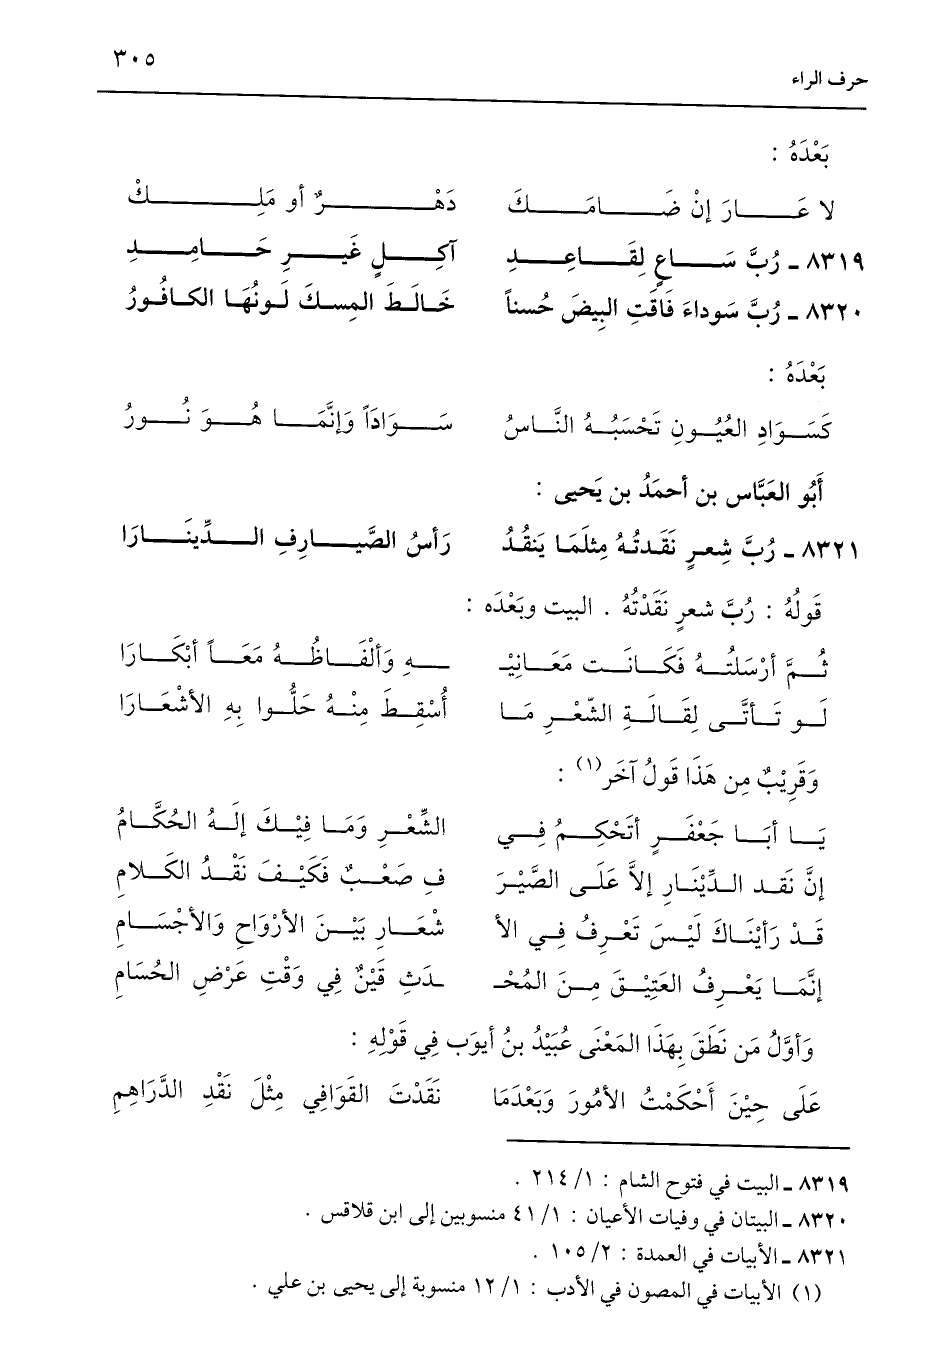 ٣٠٥
حرف الراء
بَعْدَهُ :
لا عَـارَ إنْ ضَـامَـكَ دَهْـرٌ أو مَلِـكْ
٨٣١٩ ـ رُبَّ سَـاعٍ لِقَـاعِـدِ آكِـلٍ غَيـرِ حَـامِـدِ
٨٣٢٠ ـ رُبَّ سَوداءَ فَاقَتِ البِيضَ حُسناً خَالَطَ المِسكَ لَونُهَا الكافُورُ
بَعْدَهُ :
كَسَوَادِ العُيُونِ تَحْسَبُهُ النَّاسُ سَوَادَاً وَإنَّمَا هُوَ نُورُ
أَبُو العَبَّاس بن أحمَدُ بن يَحيى :
٨٣٢١ ـ رُبَّ شِعرٍ نَقَدتُهُ مِثلَمَا يَنقُدُ رَأسُ الصَّيارِفِ الدِّينَارَا
قَولُهُ : رُبَّ شعرٍ نَقَدْتُهُ . البيت وبَعْدَه :
ثُمَّ أرْسَلتُهُ فَكَانَت مَعَانِيْـ ـهِ وَألْفَاظُهُ مَعَاً أبْكَارَا
لَو تَأتَّى لِقَالَةِ الشّعْرِ مَا أُسْقِطَ مِنْهُ حَلُّوا بِهِ الأشْعَارَا
وَقَرِيْبٌ مِن هَذَا قَولُ آخَر(١) :
يَا أبَا جَعْفَرٍ أتَحْكِمُ فِي الشِّعْرِ وَمَا فِيْكَ إلَهُ الحُكَّامُ
إنَّ نَقد الدِّيْنَارِ إلاَّ عَلَى الصَّيْرَ فِ صَعْبٌ فَكَيْفَ نَقْدُ الكَلامِ
قَدْ رَأيْنَاكَ لَيْسَ تَعْرِفُ فِي الأ شْعَارِ بَيْنَ الأرْوَاحِ وَالأجْسَامِ
إنَّمَا يَعْرِفُ العَتِيْقَ مِنَ المُحْـ ـدَثِ قَيْنٌ فِي وَقْتِ عَرْضِ الحُسَامِ
وَأوَّلُ مَن نَطَقَ بِهَذَا المَعْنَى عُبَيْدُ بنُ أيوَب فِي قَوْلِهِ :
عَلَى حِيْنَ أحْكَمْتُ الأمُورَ وَبَعْدَمَا نَقَدْتَ القَوَافِي مِثْلَ نَقْدِ الدَّرَاهِمِ
٨٣١٩ ـ البيت في فتوح الشام : ٢١٤/١ .
٨٣٢٠ ـ البيتان في وفيات الأعيان : ٤١/١ منسوبين إلى ابن قلاقس .
٨٣٢١ ـ الأبيات في العمدة : ١٠٥/٢ .
(١) الأبيات في المصون في الأدب : ١٢/١ منسوبة إلى يحيى بن علي .